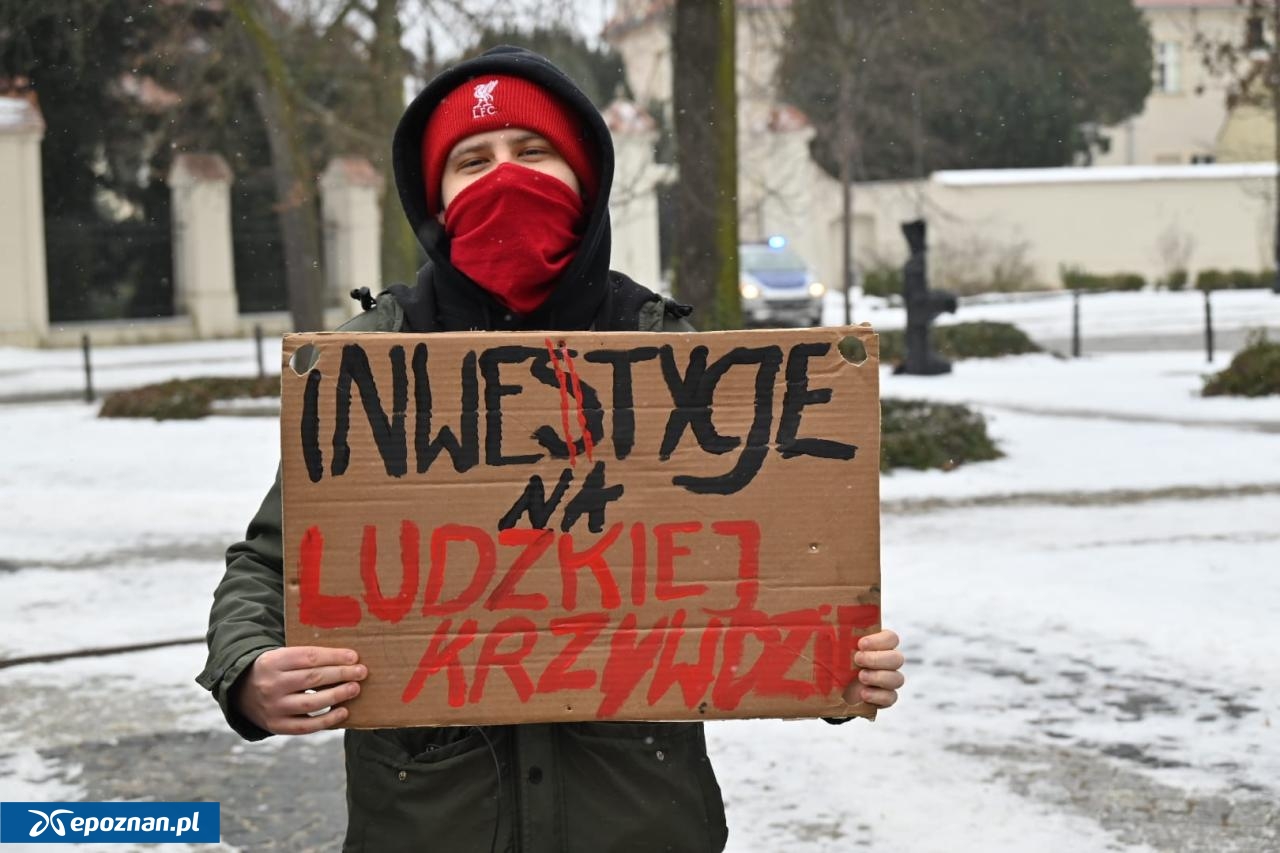 LFC
INWESTYCJE
NA
LUDZKIEJ
KRZYWDZIE
epoznan.pl